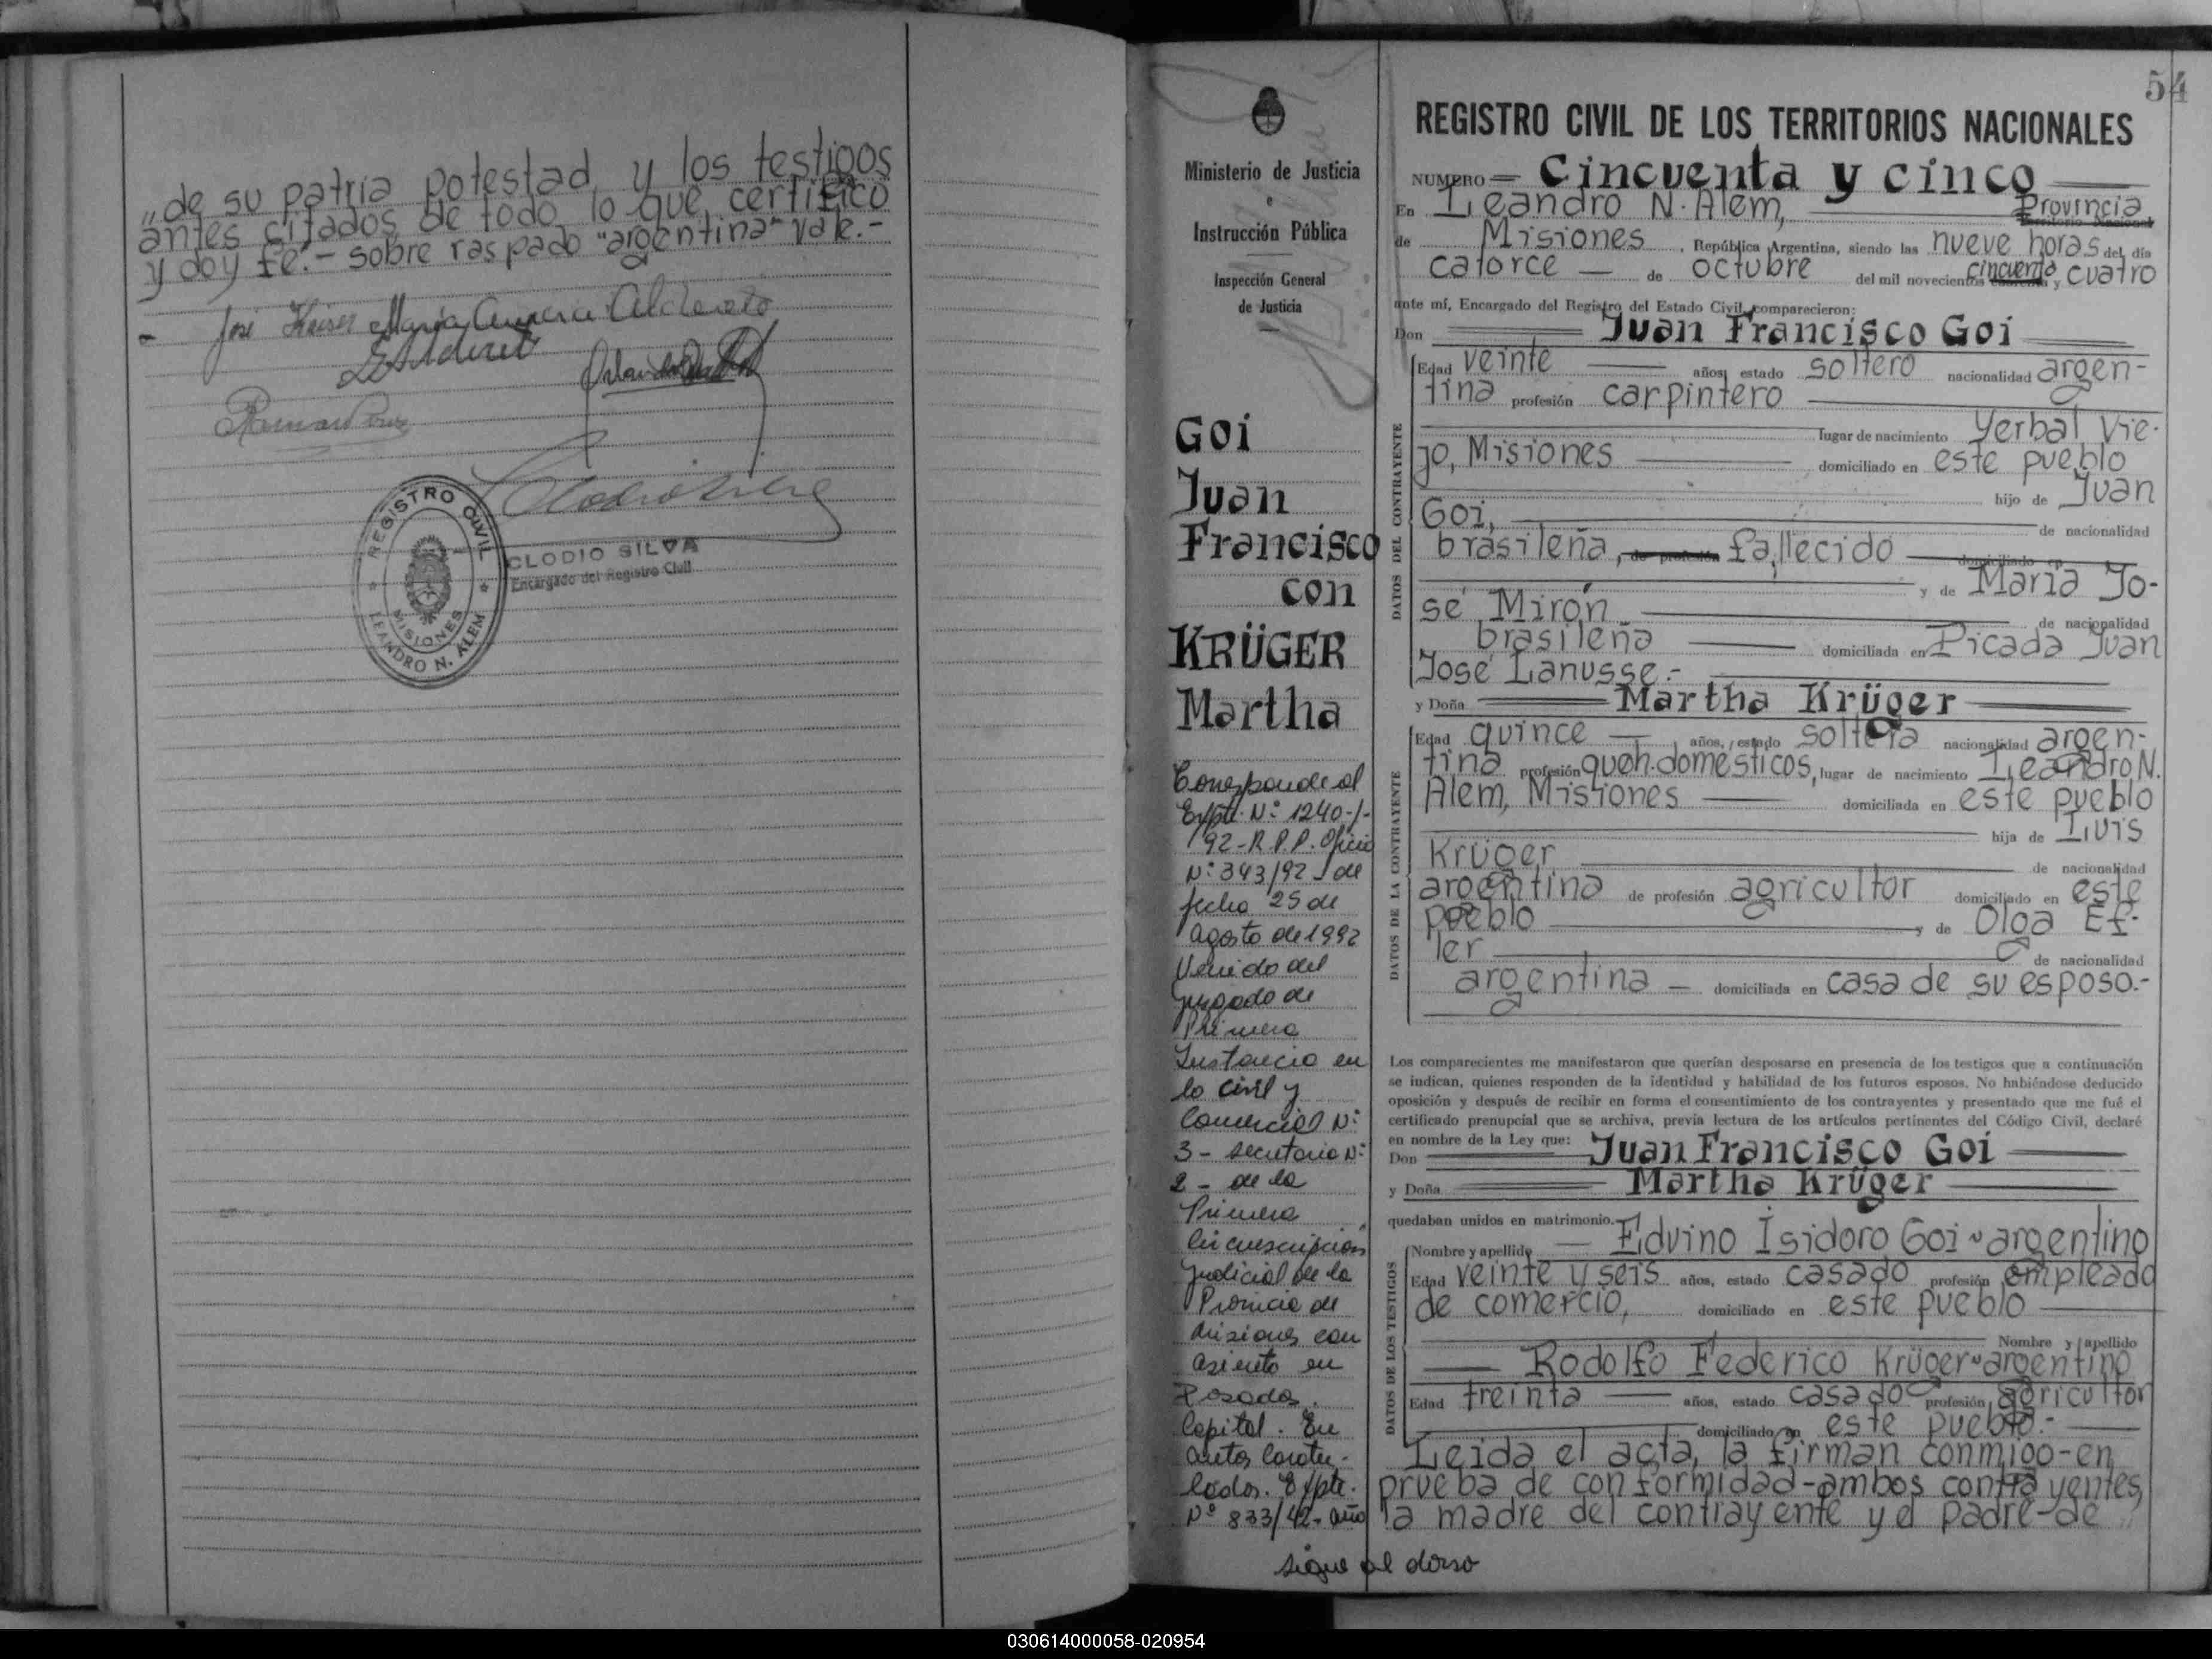 „de su patria potestad, y los testigos
antes citados de todo lo que certifico
y doy fé.- sobre raspado "argentina" vale.-
José Kaiser María
REGISTRO CIVIL
MISIONES
LEANDRO N. ALEM
CLODIO SILVA
Encargado del Registro Civil
54
Ministerio de Justicia
e
Instrucción Pública
Inspección General
de Justicia
Goi
Juan
Francisco
con
KRÜGER
Martha
Corresponde al
Expte. Nº 1240-/-
92-R.P.P. Oficio
Nº 343/92 de
fecha 25 de
agosto de 1992
Venido del
Juzgado de
Primera
Instancia en
lo Civil y
Comercial Nº
3 - secretaria Nº
2 - de la
Primera
Circunscripción
Judicial de la
Provincia de
Misiones con
asiento en
Posadas.
Capital. En
autos caratu-
lados. Expte.
Nº 833/42- año
sigue al dorso
REGISTRO CIVIL DE LOS TERRITORIOS NACIONALES
NUMERO Cincuenta y cinco
En Leandro N. Alem, Provincia Territorio Nacional
de Misiones, República Argentina, siendo las nueve horas del día
catorce de octubre del mil novecientos cincuenta cuarenta y cuatro
ante mí, Encargado del Registro del Estado Civil, comparecieron:
Don Juan Francisco Goi
DATOS DEL CONTRAYENTE
Edad veinte años, estado soltero nacionalidad argen-
tina profesión carpintero
lugar de nacimiento Yerbal Vie-
jo, Misiones domiciliado en este pueblo
hijo de Juan
Goi, de nacionalidad
brasileña, de profesión fallecido domiciliado en
y de María Jo-
sé Mirón de nacionalidad
brasileña domiciliada en Picada Juan
José Lanusse.-
y Doña Martha Krüger
DATOS DE LA CONTRAYENTE
Edad quince años, estado soltera nacionalidad argen-
tina profesión queh. domésticos, lugar de nacimiento Leandro N.
Alem, Misiones domiciliada en este pueblo
hija de Luis
Krüger de nacionalidad
argentina de profesión agricultor domiciliado en este
pueblo y de Olga Ef-
ler de nacionalidad
argentina domiciliada en casa de su esposo.-
Los comparecientes me manifestaron que querían desposarse en presencia de los testigos que a continuación
se indican, quienes responden de la identidad y habilidad de los futuros esposos. No habiéndose deducido
oposición y después de recibir en forma el consentimiento de los contrayentes y presentado que me fué el
certificado prenupcial que se archiva, previa lectura de los artículos pertinentes del Código Civil, declaré
en nombre de la Ley que:
Don Juan Francisco Goi
y Doña Martha Krüger
quedaban unidos en matrimonio.
DATOS DE LOS TESTIGOS
Nombre y apellido Edvino Isidoro Goi - argentino
Edad veinte y seis años, estado casado profesión empleado
de comercio, domiciliado en este pueblo
Nombre y apellido
Rodolfo Federico Krüger - argentino
Edad treinta años, estado casado profesión agricultor
domiciliado en este pueblo.-
Leida el acta, la firman conmigo-en
prueba de conformidad-ambos contrayentes,
la madre del contrayente y el padre-de
030614000058-020954